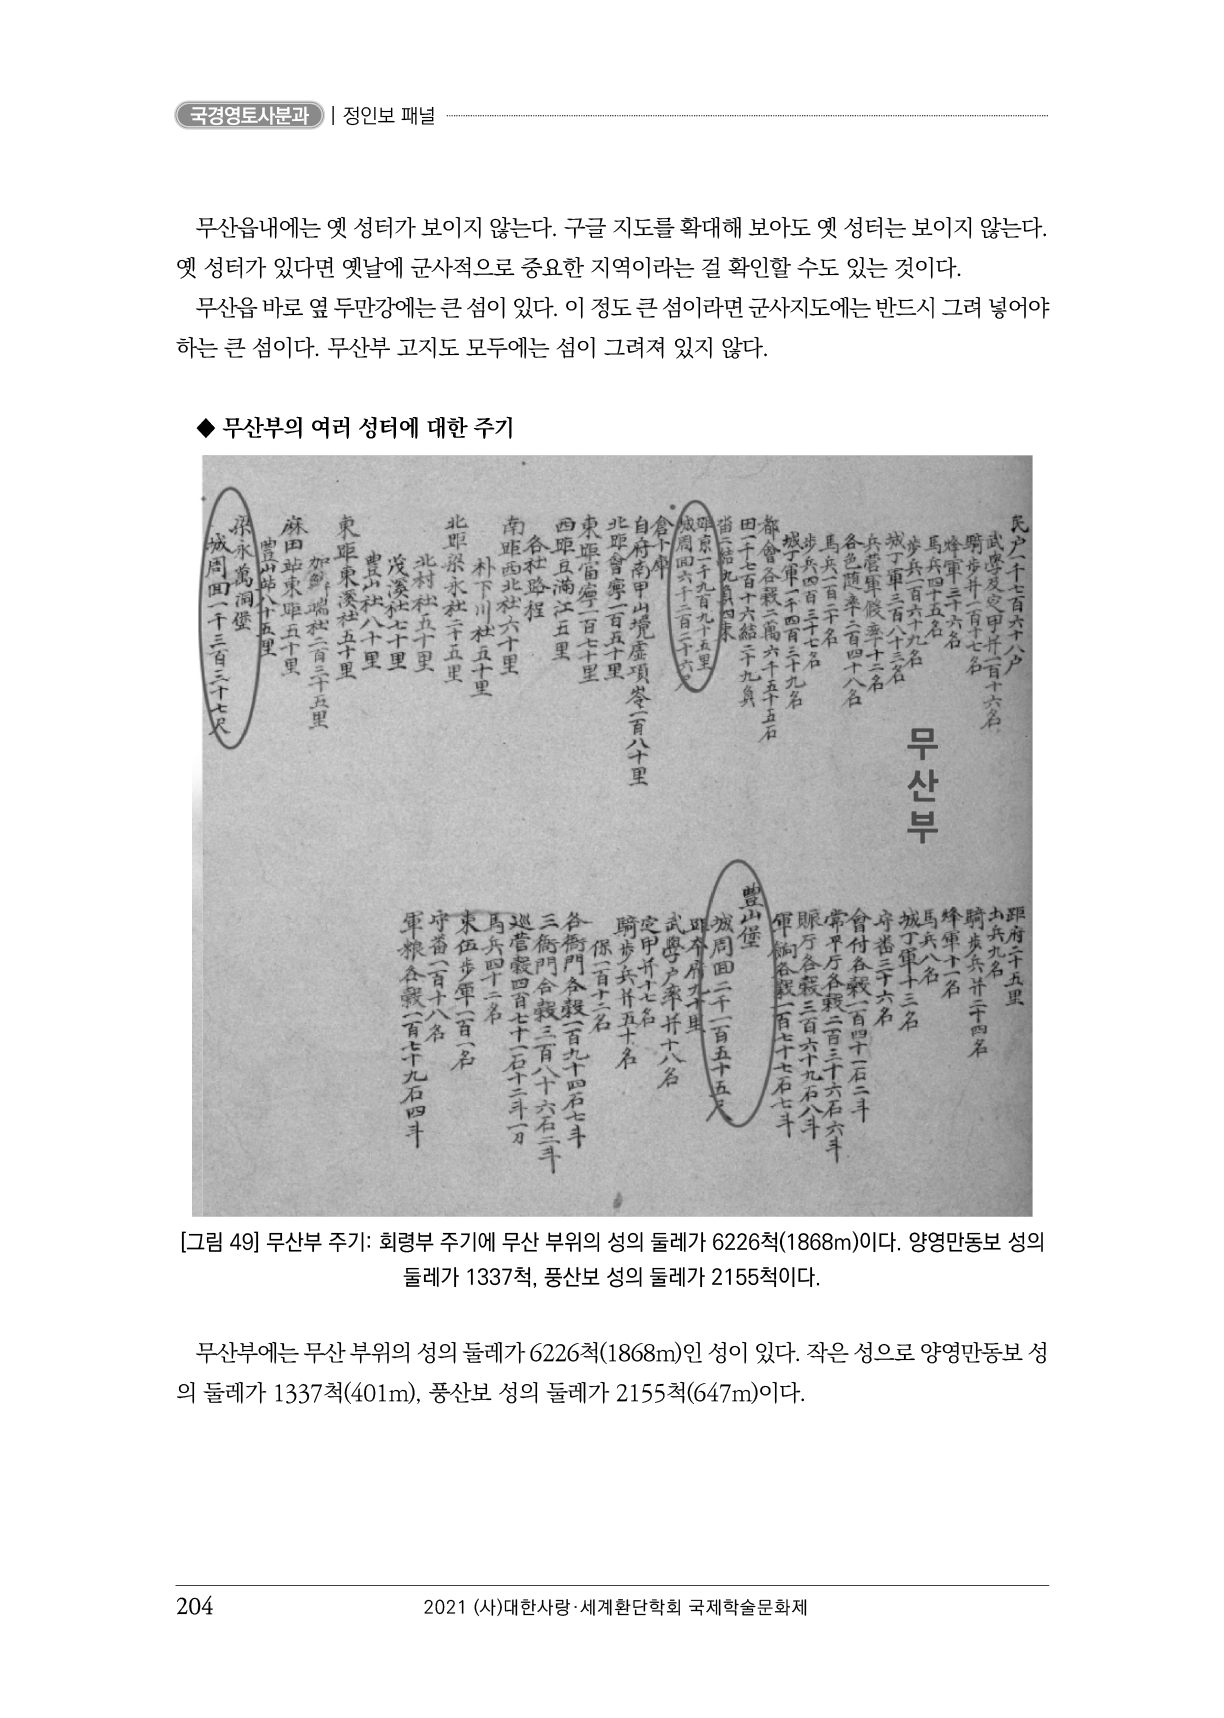 국경영토사분과 | 정인보 패널
무산읍내에는 옛 성터가 보이지 않는다. 구글 지도를 확대해 보아도 옛 성터는 보이지 않는다.
옛 성터가 있다면 옛날에 군사적으로 중요한 지역이라는 걸 확인할 수도 있는 것이다.
무산읍 바로 옆 두만강에는 큰 섬이 있다. 이 정도 큰 섬이라면 군사지도에는 반드시 그려 넣어야
하는 큰 섬이다. 무산부 고지도 모두에는 섬이 그려져 있지 않다.
◆ 무산부의 여러 성터에 대한 주기
民户一千七百六十八户
武學及定甲幷一百十六名
騎步幷一百十七名
烽軍三十六名
馬兵四十五名
步兵一百六十九名
城丁軍三百八十三名
兵營軍餱率十二名
各色随率二百四十八名
馬兵一百二十名
步兵四百三十七名
城丁軍一千四百三十九名
都會各穀二萬六千五十五石
田一千七百十六結二十九負
畓二結九負四束
距京一千九百九十五里
城周回六千二百二十六尺
倉卜庫
自府南甲山境虛項岺一百八十里
北距會寧一百五十里
東距富寧一百七十里
西距豆滿江五里
各社路程
南距西北社六十里
朴下川社五十里
北距梁永社二十五里
北村社五十里
茂溪社七十里
豊山社八十里
東距東溪社五十里
加 端社二百三十五里
麻田站東距五十里
豊山站八十五里
梁永萬洞堡
城周回一千三百三十七尺
무산부
距府二十五里
出兵九名
騎步兵幷二十四名
烽軍十一名
馬兵八名
城丁軍十三名
守番三十六名
會付各穀一百四十一石二斗
常平厅各穀二百三十六石六斗
賑厅各穀三百六十九石八斗
軍餉各穀一百七十七石七斗
豊山堡
城周回二千一百五十五尺
距本府九十里
武學户率幷十八名
定甲幷十七名
騎步兵幷五十名
保一百十二名
各衙門各穀一百九十四石七斗
三衙門合穀三百八十六石二斗
巡营穀四百七十一石十二斗一刀
馬兵四十二名
束伍步軍一百一名
守番一百十八名
軍粮各穀一百七十九石四斗
[그림 49] 무산부 주기: 회령부 주기에 무산 부위의 성의 둘레가 6226척(1868m)이다. 양영만동보 성의
둘레가 1337척, 풍산보 성의 둘레가 2155척이다.
무산부에는 무산 부위의 성의 둘레가 6226척(1868m)인 성이 있다. 작은 성으로 양영만동보 성
의 둘레가 1337척(401m), 풍산보 성의 둘레가 2155척(647m)이다.
204
2021 (사)대한사랑·세계환단학회 국제학술문화제